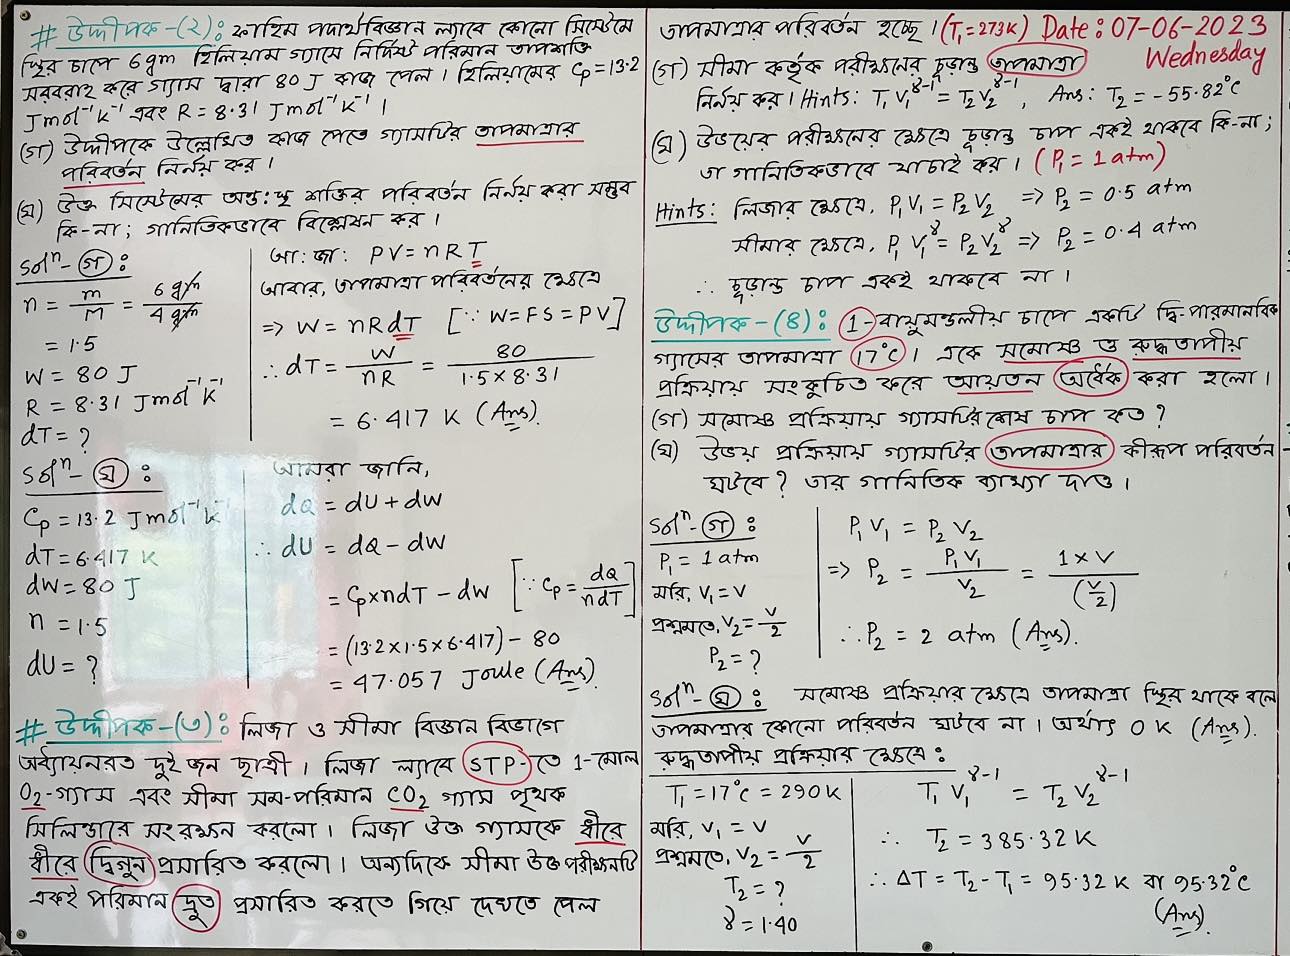 # উদ্দীপক-(২): ফাহিম পদার্থবিজ্ঞান ল্যাবে কোনো সিস্টেমে
স্থির চাপে 6gm হিলিয়াম গ্যাসে নির্দিষ্ট পরিমান তাপশক্তি
সরবরাহ করে গ্যাস দ্বারা 80 J কাজ পেল। হিলিয়ামের Cp = 13.2
Jmol⁻¹K⁻¹ এবং R = 8.31 Jmol⁻¹K⁻¹।
(গ) উদ্দীপকে উল্লেখিত কাজ পেতে গ্যাসটির তাপমাত্রার
পরিবর্তন নির্নয় কর।
(ঘ) উক্ত সিস্টেমের অন্ত:স্থ শক্তির পরিবর্তন নির্নয় করা সম্ভব
কি-না; গানিতিকভাবে বিশ্লেষন কর।
Solⁿ-(গ):
n = m/M = 6 gm/4 gm
= 1.5
W = 80 J
R = 8.31 Jmol⁻¹K⁻¹
dT = ?
আ: জা: PV = nRT
আবার, তাপমাত্রা পরিবর্তনের ক্ষেত্রে
=> W = nRdT [∵ W = FS = PV]
∴ dT = W/nR = 80/1.5×8.31
= 6.417 K (Ans).
Solⁿ-(ঘ):
Cp = 13.2 Jmol⁻¹K⁻¹
dT = 6.417 K
dW = 80 J
n = 1.5
dU = ?
আমরা জানি,
dQ = dU + dW
∴ dU = dQ - dW
= Cp×ndT - dW [∵ Cp = dQ/ndT]
= (13.2×1.5×6.417) - 80
= 47.057 Joule (Ans).
# উদ্দীপক-(৩): লিজা ও সীমা বিজ্ঞান বিভাগে
অধ্যায়নরত দুই জন ছাত্রী। লিজা ল্যাবে STP-তে 1-মোল
O₂-গ্যাস এবং সীমা সম-পরিমান CO₂ গ্যাস পৃথক
সিলিন্ডারে সংরক্ষন করলো। লিজা উক্ত গ্যাসকে ধীরে
ধীরে দ্বিগুন প্রসারিত করলো। অন্যদিকে সীমা উক্ত পরীক্ষনটি
একই পরিমান দ্রুত প্রসারিত করতে গিয়ে দেখতে পেল
তাপমাত্রার পরিবর্তন হচ্ছে। (T₁=273K) Date: 07-06-2023
Wednesday
(গ) সীমা কর্তৃক পরীক্ষনের চূড়ান্ত তাপমাত্রা
নির্নয় কর। Hints: T₁V₁^γ-1 = T₂V₂^γ-1, Ans: T₂ = -55.82°C
(ঘ) উভয়ের পরীক্ষনের ক্ষেত্রে চূড়ান্ত চাপ একই থাকবে কি-না;
তা গানিতিকভাবে যাচাই কর। (P₁ = 1 atm)
Hints: লিজার ক্ষেত্রে, P₁V₁ = P₂V₂ => P₂ = 0.5 atm
সীমার ক্ষেত্রে, P₁V₁^γ = P₂V₂^γ => P₂ = 0.4 atm
∴ চূড়ান্ত চাপ একই থাকবে না।
উদ্দীপক-(৪): 1-বায়ুমন্ডলীয় চাপে একটি দ্বি-পারমানবিক
গ্যাসের তাপমাত্রা 17°C। একে সমোষ্ণ ও রুদ্ধতাপীয়
প্রক্রিয়ায় সংকুচিত করে আয়তন অর্ধেক করা হলো।
(গ) সমোষ্ণ প্রক্রিয়ায় গ্যাসটির শেষ চাপ কত?
(ঘ) উভয় প্রক্রিয়ায় গ্যাসটির তাপমাত্রার কীরূপ পরিবর্তন
ঘটবে? তার গানিতিক ব্যাখ্যা দাও।
Solⁿ-(গ):
P₁ = 1 atm
ধরি, V₁ = V
প্রশ্নমতে, V₂ = V/2
P₂ = ?
P₁V₁ = P₂V₂
=> P₂ = P₁V₁/V₂ = 1×V/(V/2)
∴ P₂ = 2 atm (Ans).
Solⁿ-(ঘ): সমোষ্ণ প্রক্রিয়ার ক্ষেত্রে তাপমাত্রা স্থির থাকে বলে
তাপমাত্রার কোনো পরিবর্তন ঘটবে না। অর্থাৎ 0 K (Ans).
রুদ্ধতাপীয় প্রক্রিয়ার ক্ষেত্রে:
T₁ = 17°C = 290K
ধরি, V₁ = V
প্রশ্নমতে, V₂ = V/2
T₂ = ?
γ = 1.40
T₁V₁^γ-1 = T₂V₂^γ-1
∴ T₂ = 385.32 K
∴ ΔT = T₂ - T₁ = 95.32 K বা 95.32°C
(Ans).